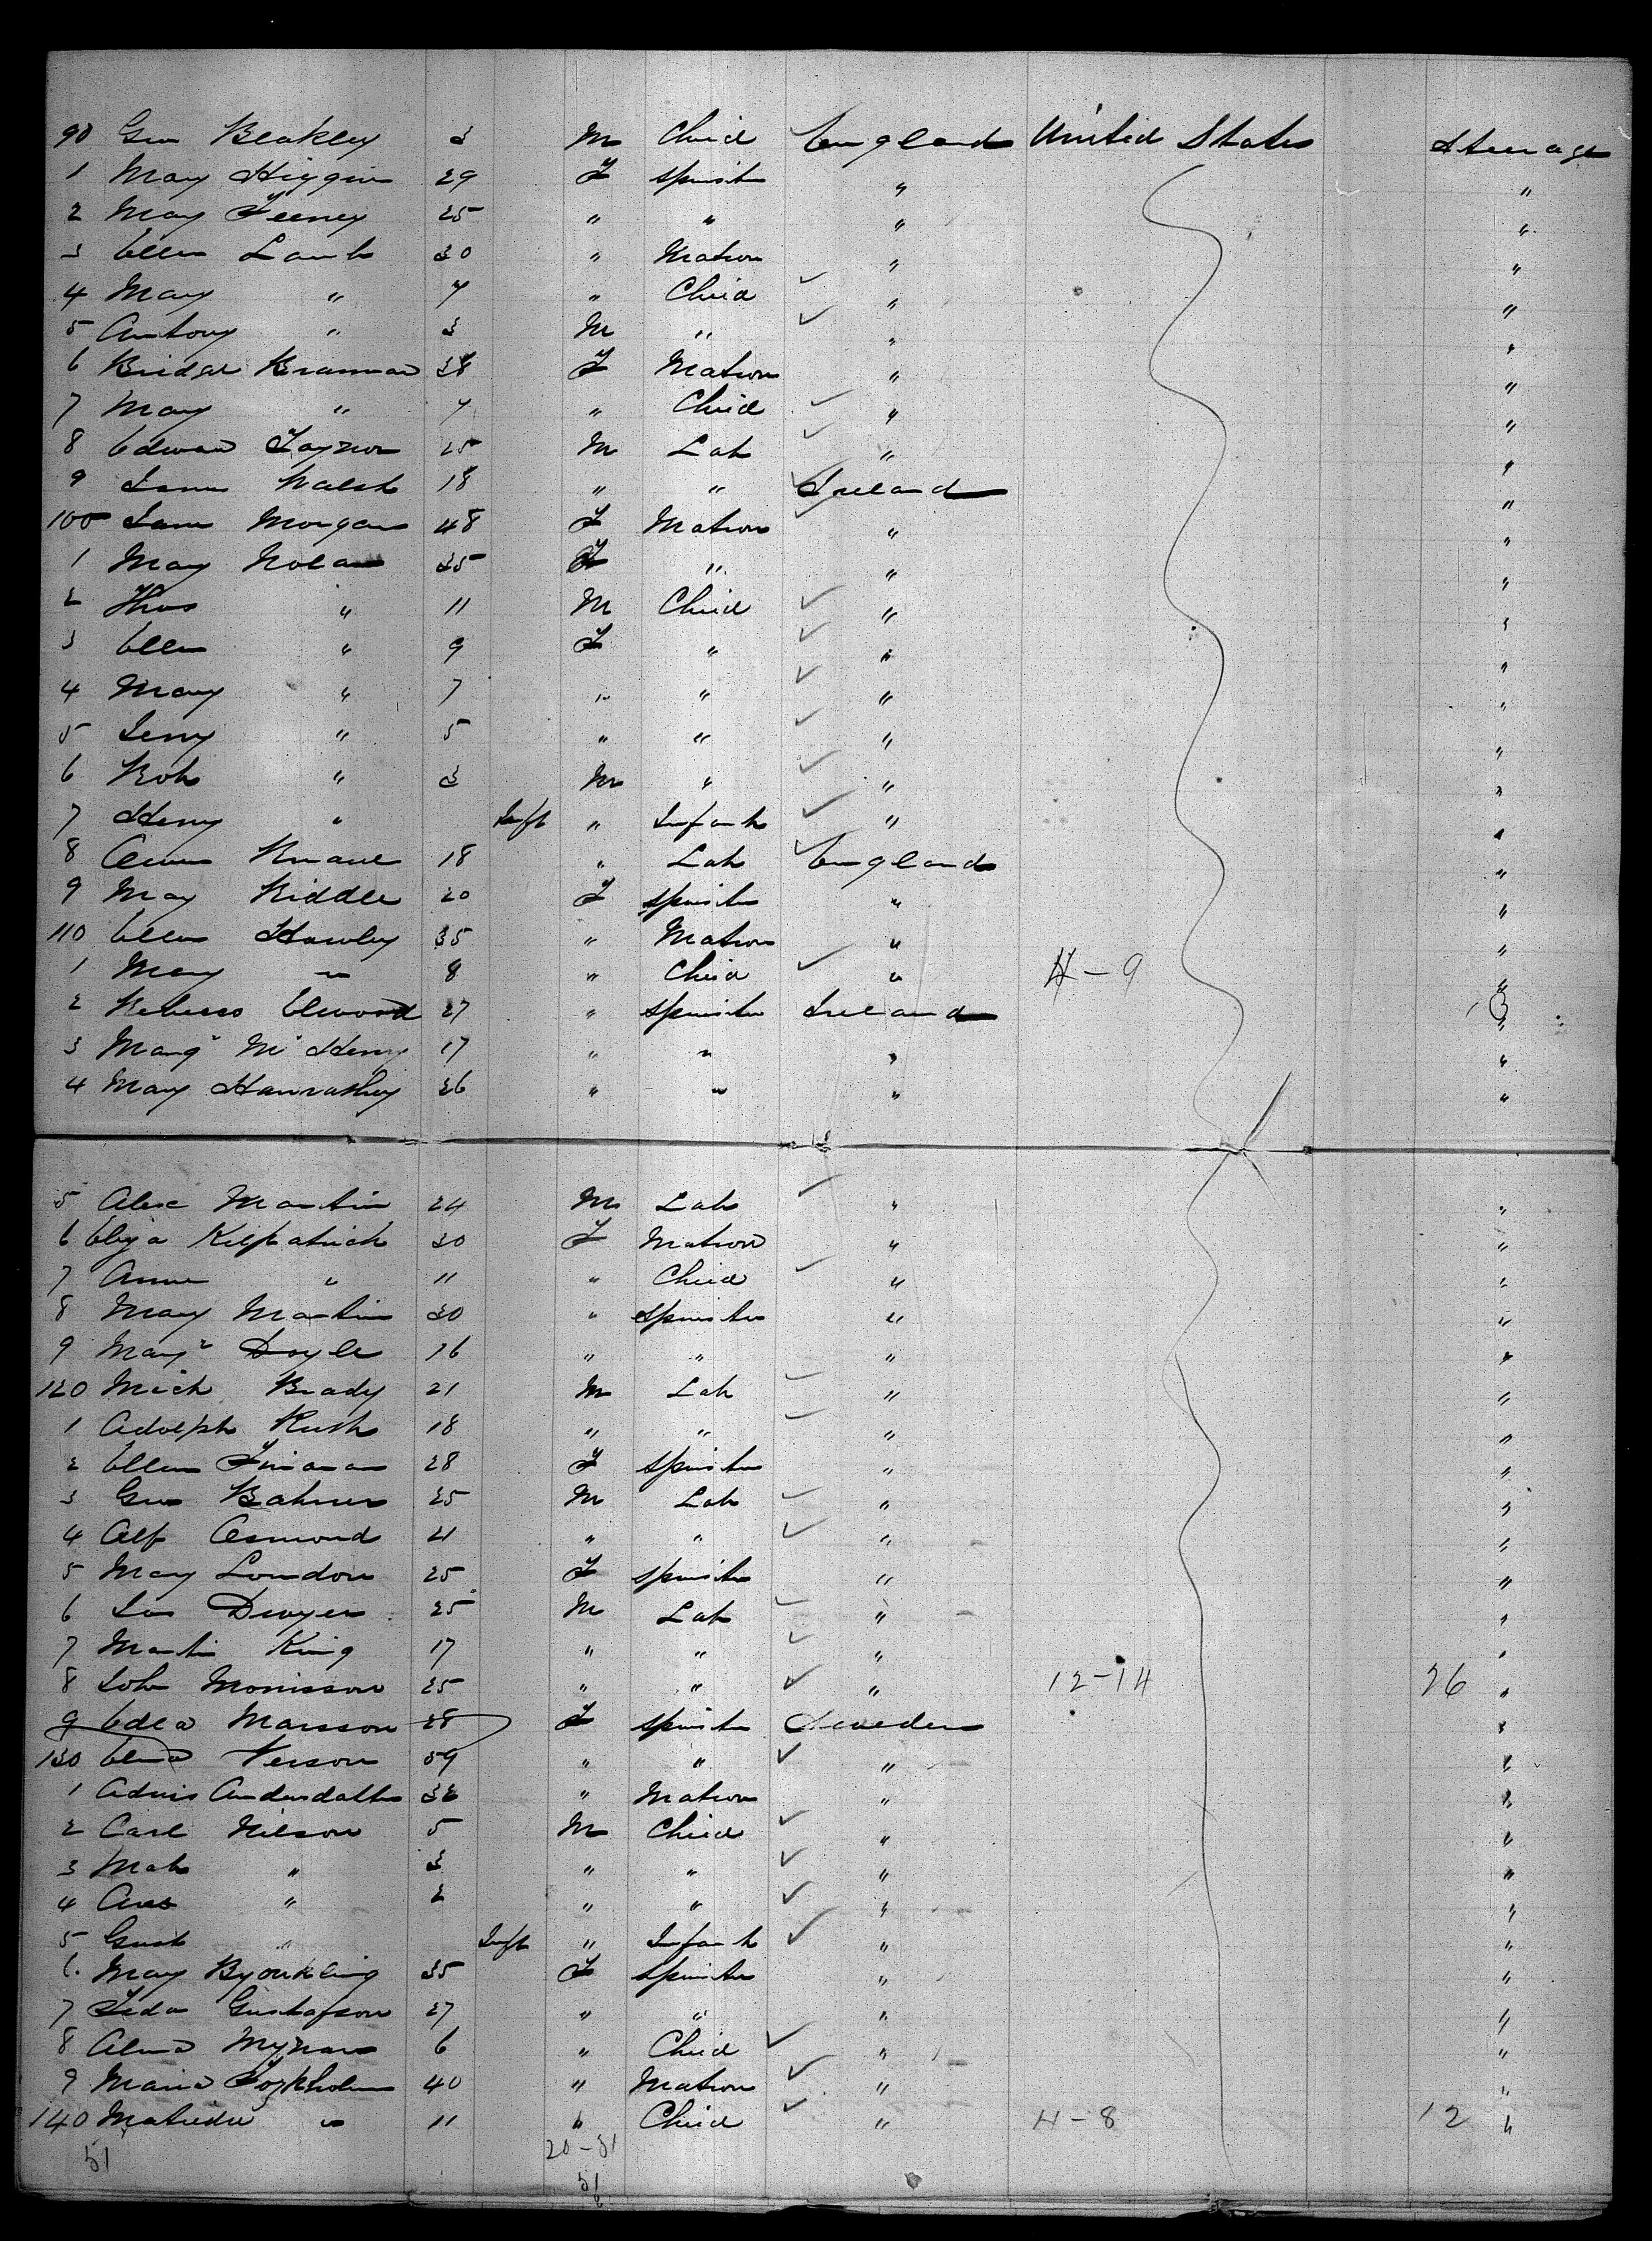 90 Geo Blakley 3 M Child England United States Steerage
1 Mary Higgins 29 F Spinster " "
2 Mary Feeney 25 " " " "
3 Ellen Lamb 30 " Matron " "
4 Mary " 7 " Child " "
5 Antony " 3 M " " "
6 Bridget Brannan 38 F Matron " "
7 Mary " 7 " Child " "
8 Edward Taynor 25 M Lab " "
9 James Walsh 18 " " Ireland "
100 Jane Morgan 48 F Matron " "
1 Mary Nolan 35 F " " "
2 Thos " 11 M Child " "
3 Ellen " 9 F " " "
4 Mary " 7 " " " "
5 Jenny " 5 " " " "
6 Rob " 3 M " " "
7 Henry " Inft " Infant " "
8 18 " Lab England "
9 May Riddle 20 F Spinster " "
110 Ellen Hawley 35 " Matron " "
1 Mary " 8 " Child " 4-9 "
2 Rebecca Elwood 27 " Spinster Ireland 3 "
3 Margt McHenry 17 " " " "
4 Mary Hanrathy 26 " " " "
5 Alex Martin 24 M Lab " "
6 Eliza Kilpatrick 30 F Matron " "
7 Anne " 11 " Child " "
8 Mary Martin 30 " Spinster " "
9 Margt Doyle 16 " " " "
120 Mich Brady 21 M Lab " "
1 Adolph Rush 18 " " " "
2 Ellen Finanan 28 F Spinster " "
3 Geo 25 M Lab " "
4 Alf Osmond 21 " " " "
5 Mary London 25 F Spinster " "
6 Jas Dwyer 25 M Lab " "
7 Martin King 17 " " " "
8 John Morrisson 25 " " " 12-14 26 "
9 Edla Marsson 28 F Spinster Sweden "
130 59 " " " "
1 32 " Matron " "
2 Carl Nilson 5 M Child " "
3 " 3 " " " "
4 " 2 " " " "
5 Gust " Inft " Infant " "
6 May Bjorkling 35 F Spinster " "
7 Gustafson 27 " " " "
8 Alma 6 " Child " "
9 Maria 40 " Matron " "
140 Matilda " 11 " Child " 4-8 12 "
51 20-31
51